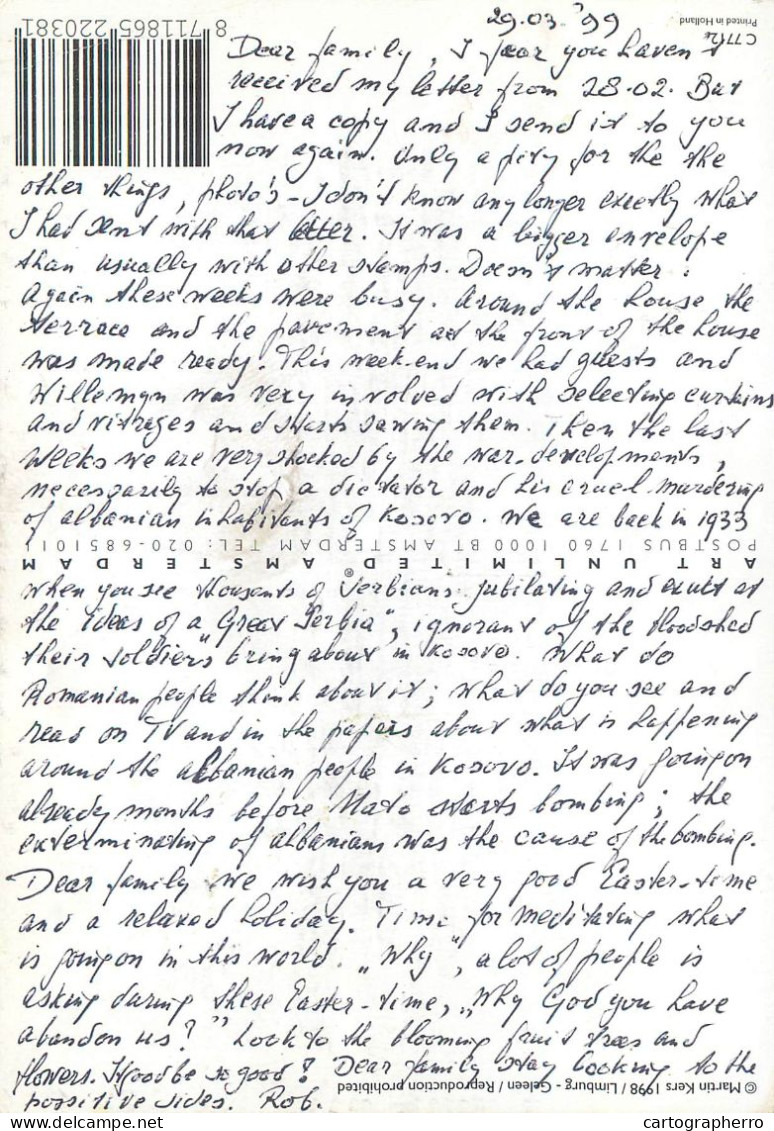 29.03.'99
8 711865 220381
C7712
Printed in Holland
Dear family, I fear you haven't
received my letter from 28.02. But
I have a copy and I send it to you
now again. Only a pity for the the
other things, photo's - I don't know any longer exactly what
I had sent with that letter. It was a bigger envelope
than usually with other stamps. Doesn't matter.
Again these weeks were busy. Around the house the
terrace and the pavement at the front of the house
was made ready. This week-end we had guests and
Willemyn was very involved with selecting curtains
and vitrages and starts sawing them. Then the last
weeks we are very shocked by the war-developments,
necessarily to stop a dictator and his cruel murdering
of albanian inhabitants of Kosovo. We are back in 1933
POSTBUS 1760 1000 BT AMSTERDAM TEL: 020-6851011
ART UNLIMITED® AMSTERDAM
when you see thousants of Serbians jubilating and exult at
the ideas of a Great "Serbia", ignorant of the bloodshed
their "soldiers" bring about in Kosovo. What do
Romanian people think about it; what do you see and
read on TV and in the papers about what is happening
around the albanian people in Kosovo. It was going on
already months before Nato starts bombing; the
exterminating of albanians was the cause of the bombing.
Dear family we wish you a very good Easter-time
and a relaxed holiday. Time for meditating what
is going on in this world. „Why", a lot of people is
asking during these Easter-time, „Why God you have
abandon us?" Look to the blooming fruit trees and
flowers. God be so good? Dear family stay looking to the
possitive sides. Rob.
© Martin Kers 1998 / Limburg - Geleen / Reproduction prohibited
cartographerro